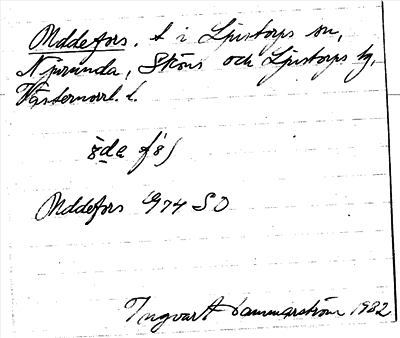 Oddefors. t i Ljustorps sn,
Njurunda, Sköns och Ljustorps tg,
Västernorrl. l.
Oddefors 1974 SO
Ingvar Hammarström 1982